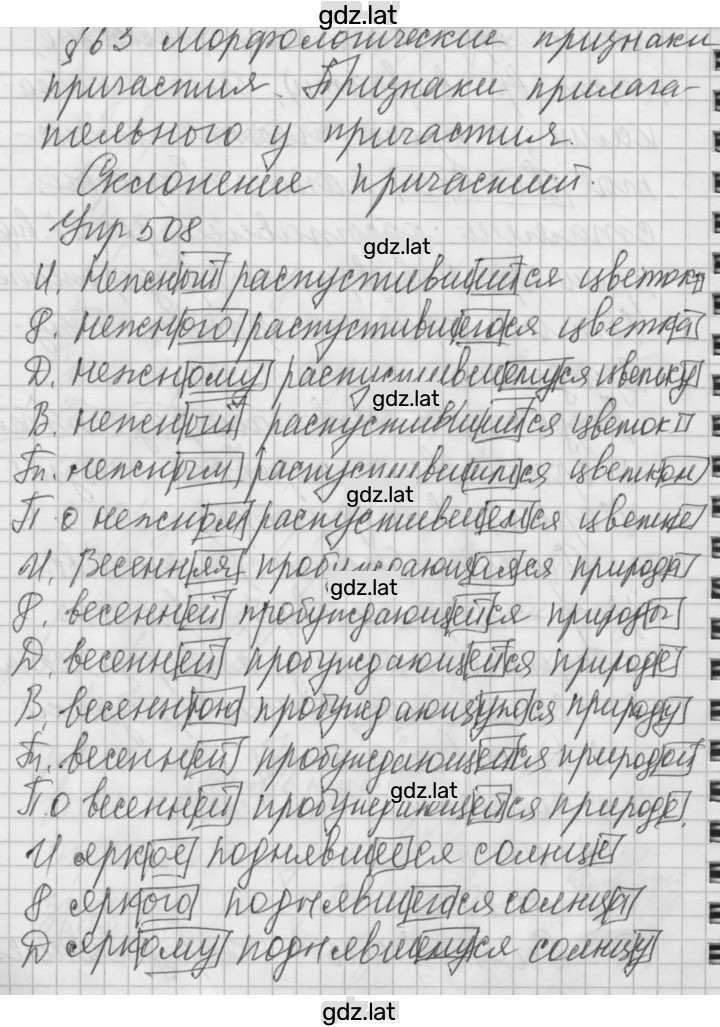 gdz.lat
§63 Морфологические признаки
причастия. Признаки прилага-
тельного у причастия.
Склонение причастий.
Упр 508
gdz.lat
И. Нежный распустившийся цветок
Р. нежного распустившегося цветка
Д. нежному распустившемуся цветку
gdz.lat
В. нежный распустившийся цветок
Тп. нежным распустившимся цветком
gdz.lat
П. о нежном распустившемся цветке
И. Весенняя пробуждающаяся природа
gdz.lat
Р. весенней пробуждающейся природы
Д. весенней пробуждающейся природе
В. весеннюю пробуждающуюся природу
Тп. весенней пробуждающейся природой
gdz.lat
П. о весенней пробуждающейся природе.
И яркое поднявшееся солнце
Р яркого поднявшегося солнца
Д яркому поднявшемуся солнцу
gdz.lat